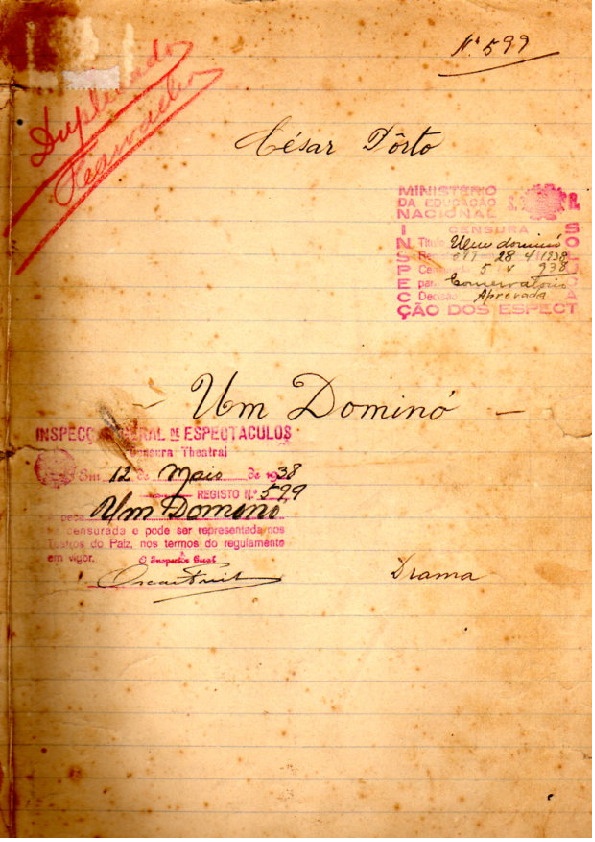 Nº 599
Duplicado
César Pôrto
MINISTÉRIO
DA EDUCAÇÃO
NACIONAL S. R.
CENSURA
Titulo Um dominó
599 28 4 1938
5 IV 938
para Conservatorio
Decisão Aprovada
INSPECÇÃO DOS ESPECT
- Um Dominó -
INSPECÇÃO GERAL DOS ESPECTACULOS
Censura Theatral
Em 12 de Maio de 1938
REGISTO N.º 599
peça Um Domino
censurada e pode ser representada nos
Teatros do Paiz, nos termos do regulamento
em vigor.
O Inspector Geral
Drama